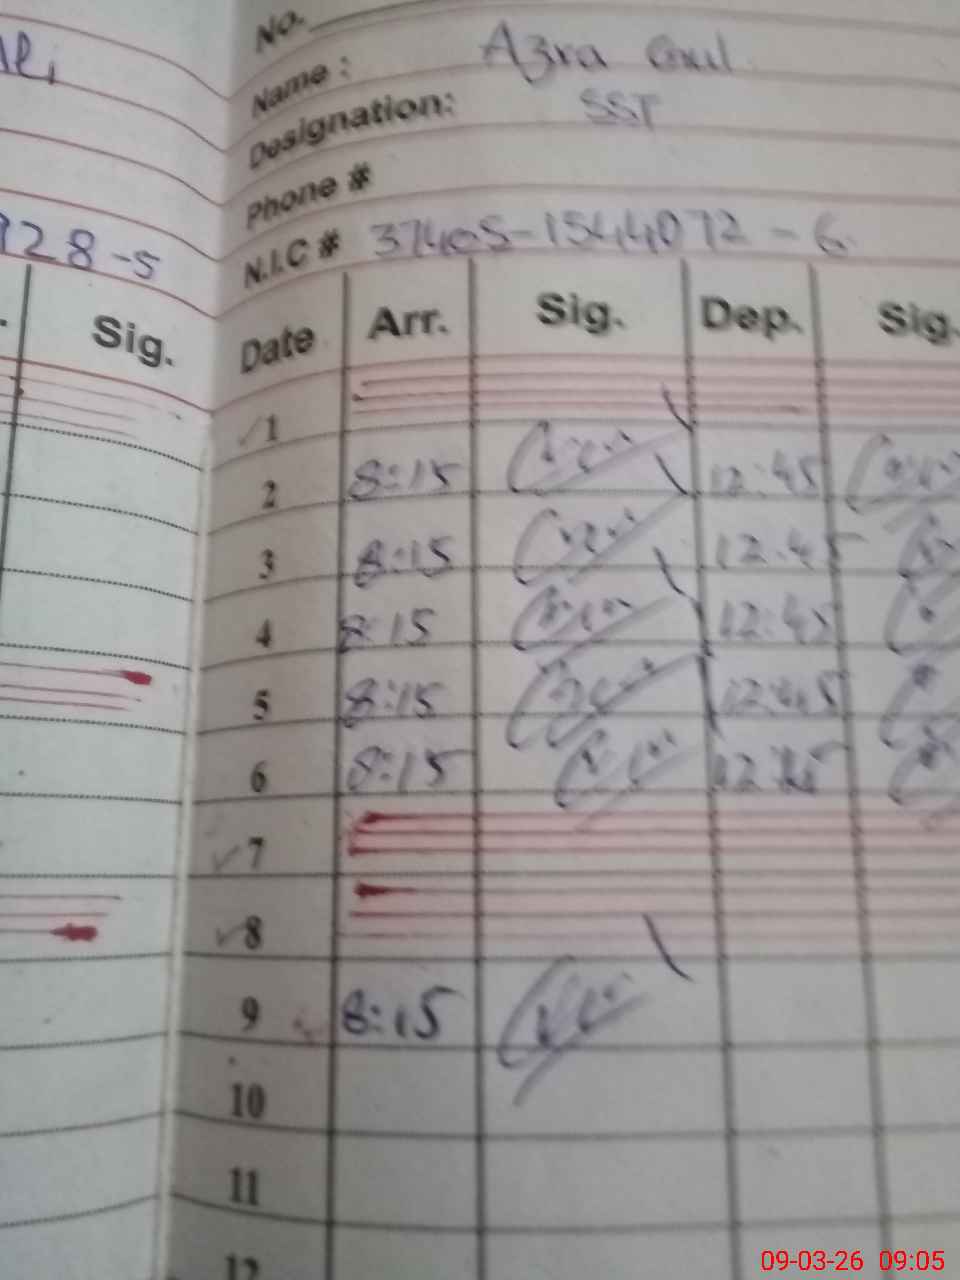 No.
Name : Azra Gul
Designation: SST
Phone #
N.I.C # 37405-1544072-6
928-5
Sig.
Date Arr. Sig. Dep. Sig.
1
2 8:15 12:45
3 8:15 12.45
4 8:15 12:45
5 8:15 12:45
6 8:15 12:45
7
8
9 8:15
10
11
12
09-03-26 09:05